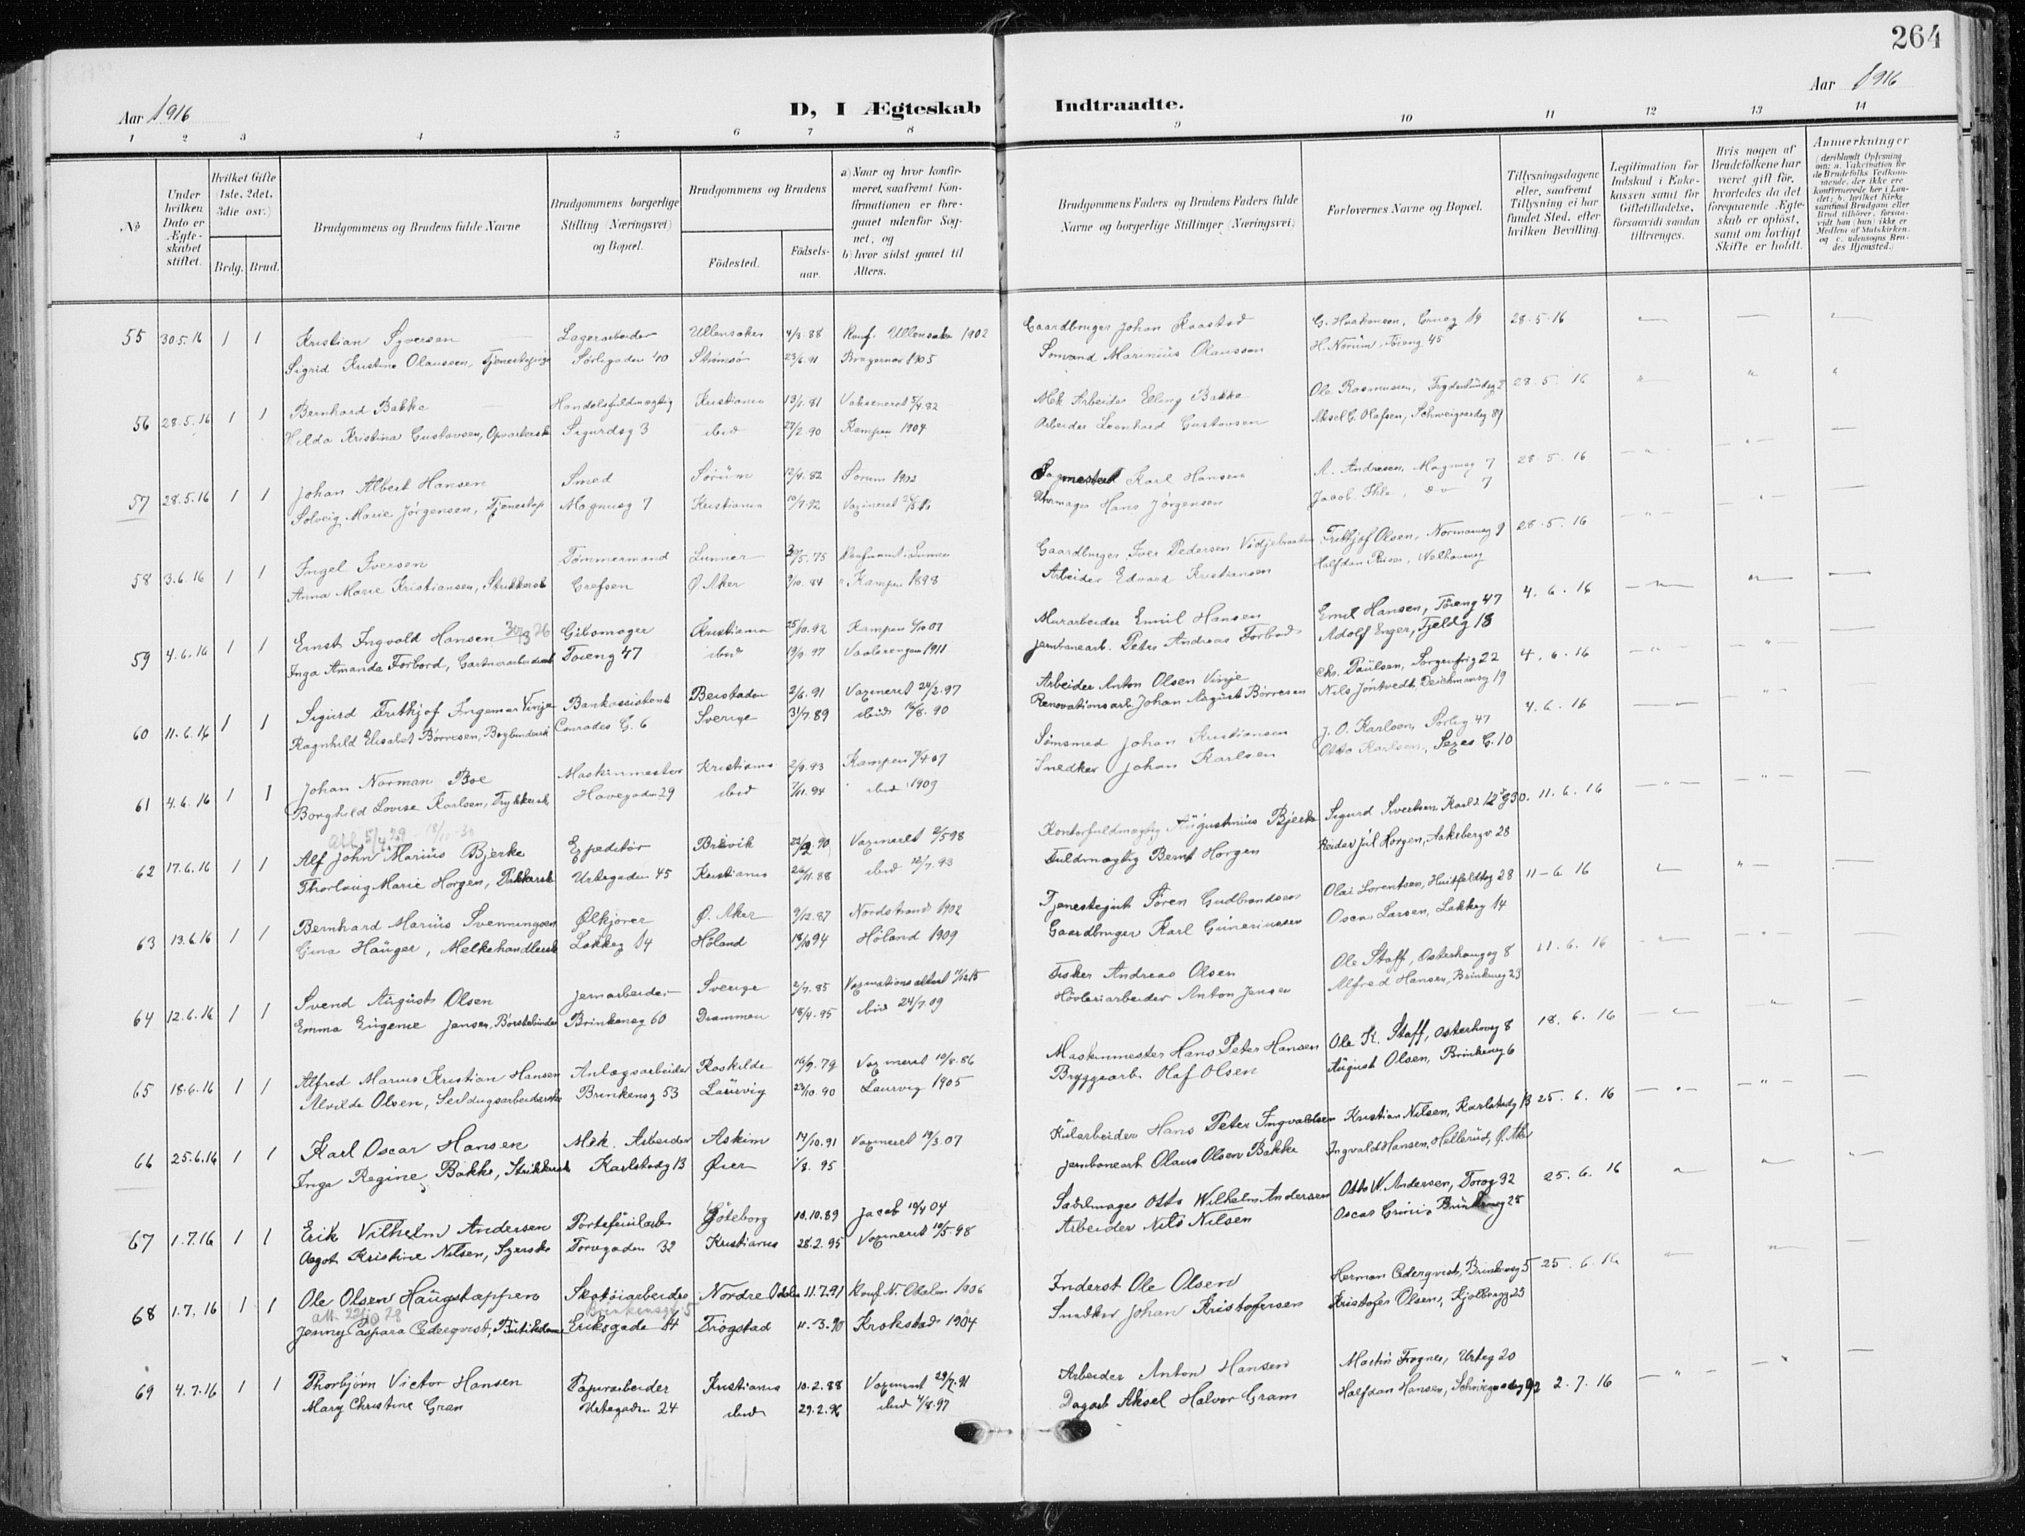 264
Aar 1916
D, I Ægteskab Indtraadte.
Aar 1916
1 2 3 4 5 6 7 8 9 10 11 12 13 14
№
Under hvilken Dato er Ægteskabet stiftet.
Hvilket Gifte 1ste, 2det, 3die osv.)
Brdg. Brud.
Brudgommens og Brudens fulde Navne
Brudgommens borgerlige Stilling (Næringsvei) og Bopæl.
Brudgommens og Brudens
Födested. Födselsaar.
a) Naar og hvor konfirmeret, saafremt Konfirmationen er foregaaet udenfor Sognet, og
b) hvor sidst gaaet til Alters.
Brudgommens Faders og Brudens Faders fulde Navne og borgerlige Stillinger (Næringsvei)
Forlovernes Navne og Bopæl.
Tillysningsdagene eller, saafremt Tillysning ei har fundet Sted, efter hvilken Bevilling.
Legitimation for Indskud i Enkekassen samt for Giftetilladelse, forsaavidt saadan tiltrænges.
Hvis nogen af Brudefolkene har været gift för, hvorledes da det foregaaende Ægteskab er oplöst, samt om lovligt Skifte er holdt.
Anmærkninger
(deriblandt Oplysning om: a. Vakcination for de Brudefolks Vedkommende, der ikke ere konfirmerede her i Landet; b. hvilket Kirkesamfund Brudgom eller Brud tilhörer, forsaavidt han (hun) ikke er Medlem af Statskirken, og c. udensogns Brudes Hjemsted.)
55 30.5.16 1 1 Kristian Syversen Lagerarbeider Ullensaker 4/3.88 Konf. Ullensaker 1902 Gaardbruger Johan Raastad G. Haakonsen, 19 28.5.16
Sigrid Kristine Olaussen, Tjenestepige Sørligaden 40 Strømsø 23/6.91 Bragernes 1905 Sømand Marinius Olaussen H. Norum, Tøieng 45
56 28.5.16 1 1 Bernhard Bakke Handelsfuldmægtig Kristiania 13/1.81 Vakcineret 5/4.82 Mek Arbeider Elling Bakke Ole Rasmussen, 28.5.16
Hilda Kristina Gustavsen, Opvarterske Sigurdsg 3 ibid 27/2.90 Kampen 1904 Arbeider Leonhard Gustavsen Aksel C. Olafsen, Schweigaardsg 89
57 28.5.16 1 1 Johan Albert Hansen Smed Sørum 12/4.82 Sørum 1902 Sagmester Karl Hansen A. Andresen, Magnusg 7 28.5.16
Solveig Marie Jørgensen, Tjenestep Magnusg 7 Kristiania 10/7.92 Hans Jørgensen Jacob Ihle, do 7
58 3.6.16 1 1 Ingel Iversen Tømmermand Lunner 5.75 Gaardbruger Iver Pedersen Frithjof Olsen, Normannsg 9 28.5.16
Anna Marie Kristiansen, Strikkersk Grefsen Ø. Aker 9/10.84 Kampen 1898 Arbeider Edvard Kristiansen Halfdan
59 4.6.16 1 1 Ernst Ingvald Hansen Gibsmager Kristiania 25/10.92 Kampen 1907 Murarbeider Emil Hansen Emil Hansen, Tøieng 47 4.6.16
Inga Amanda Forbord, Gartnerarbeiderske Tøieng 47 ibid 97 Vaalerengen 1911 Jernbanearb. Peter Andreas Forbord Adolf Enger, Fjeldg 18
60 11.6.16 1 1 Sigurd Frithjof Ingemar Vinje Bankassistent Beistaden 2/6.91 Vaxineret 24/2.97 Arbeider Anton Olsen Vinje Chr. Paulsen, Sorgenfrig 22 4.6.16
Ragnhild Elisabet Børresen, Bogbinderske Conrades G. 6 Sverige 31/7.89 ibid 8.90 Renovationsarb Johan August Børresen Nils Jontvedt, Deichmansg 19
61 4.6.16 1 1 Johan Norman Boe Maskinmester Kristiania 93 Kampen 07 Johan Kristiansen J. O. Karlsen, Sørlig 47 4.6.16
Borghild Lovise Karlsen, Trykkersk Havegaden 29 ibid 7/11.94 ibid 1909 Snedker Johan Karlsen Otto Karlsen, Seges G. 10
62 17.6.16 1 1 Alf John Marius Bjerke Expeditør Brevik 90 Vaxineret 2/5 98 Kontorfuldmægtig Augustinius Bjerke Sigurd Sivertsen, 11.6.16
Thorlaug Marie Horgen, Pakkersk Urtegaden 45 Kristiania 26/11.88 ibid 12/7.93 Fuldmægtig Bernt Horgen Reidar Jul Horgen, Aakebergv 28
63 13.6.16 1 1 Bernhard Marius Svenningsen Ølkjører Ø. Aker 9/12.87 Nordstrand 1902 Tjenestegut Søren Gudbrandsen Olai Lorentsen, Huitfeldtsg 28 11-6.16
Gina Hauger, Melkehandlersk Lakkeg 14 Høland 18/10 94 Høland 1909 Gaardbruger Karl Guneriussen Oscar Larsen, Lakkeg 14
64 12.6.16 1 1 Svend August Olsen Jernarbeider Sverige 2/7.85 Vaxinationsattest Fisker Andreas Olsen Ole Staff, Osterhausg 8 11.6.16
Emma Eugenie Jensen, Børstebinder Brinkensg 60 Drammen 18/4.95 ibid 24/7.09 Høvleriarbeider Anton Jensen Alfred Hansen, Brinkensg 23
65 18.6.16 1 1 Alfred Marius Kristian Hansen Anlægsarbeider Roskilde 79 Vaxineret 10/8.86 Maskinmester Hans Peter Hansen Ole K. Staff, Osterhausg 8 18.6.16
Alvilde Olsen, Seildugsarbeiderske Brinkensg 53 Laurvig 23/10.90 Laurvig 1905 Bryggearb. Olaf Olsen August Olsen, Brinkensg 6
66 25.6.16 1 1 Karl Oscar Hansen Mek. Arbeider Askim 14/10.91 Vaxineret 19/3.07 Kularbeider Hans Peter Ingvaldsen Kristian Nilsen, Karlstadg 13 25.6.16
Inga Regine Bakke, Strikkersk Karlstadg 13 Øier 1/8.95 Jernbanearb Olaus Olsen Bakke Ingvald Hansen, Hellerud, Ø. Aker
67 1.7.16 1 1 Erik Vilhelm Andersen Portefeuilarb Göteborg 10.10.89 Jacob 04 Sadelmager Otto Wilhelm Andersen Otto W. Andersen, Torvg 32 25.6.16
Aagot Kristine Nilsen, Syerske Torvegaden 32 Kristiania 28.2.95 Vaxineret 10/5.98 Arbeider Nils Nilsen Oscar Brinkensg 25
68 1.7.16 1 1 Ole Olsen Haugstappen Skotøiarbeider Nordre Odalen 11.7.91 Konf N. Odalen 1906 Inderst Ole Olsen Herman Cederqvist, Brinkensg 5 25.6.16
Jenny Caspara Cederqvist, Butikdame Eriksgade 14 Trøgstad 11.3.90 Krokstad 1904 Snedker Johan Kristofersen Kristofer Olsen, Kjølbergg 23
69 4.7.16 1 1 Thorbjørn Victor Hansen Papirarbeider Kristiania 10.2.88 Vaxineret 29/7.91 Arbeider Anton Hansen Martin Frogner, Urteg 20
Mary Christine Gran Urtegaden 24 ibid 29.2.96 ibid 4/8.97 Dagarb Aksel Halvor Gram Halfdan Hansen, Schweigaardsg 92 2.7.16